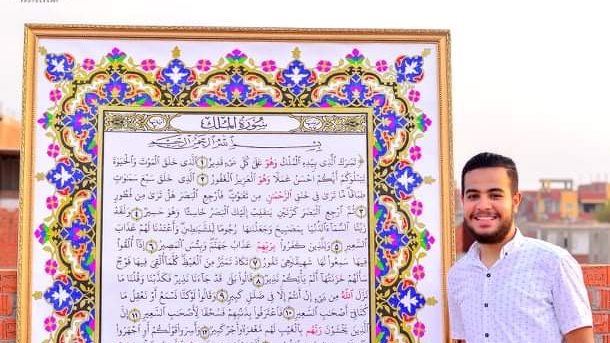 سُورَةُ المُلْك
بِسْمِ اللَّهِ الرَّحْمَٰنِ الرَّحِيمِ
تَبَٰرَكَ الَّذِى بِيَدِهِ الْمُلْكُ وَهُوَ عَلَىٰ كُلِّ شَىْءٍ قَدِيرٌ ١ الَّذِى خَلَقَ الْمَوْتَ وَالْحَيَوٰةَ
لِيَبْلُوَكُمْ أَيُّكُمْ أَحْسَنُ عَمَلًا وَهُوَ الْعَزِيزُ الْغَفُورُ ٢ الَّذِى خَلَقَ سَبْعَ سَمَٰوَٰتٍ
طِبَاقًا مَّا تَرَىٰ فِى خَلْقِ الرَّحْمَٰنِ مِن تَفَٰوُتٍ فَارْجِعِ الْبَصَرَ هَلْ تَرَىٰ مِن فُطُورٍ
٣ ثُمَّ ارْجِعِ الْبَصَرَ كَرَّتَيْنِ يَنقَلِبْ إِلَيْكَ الْبَصَرُ خَاسِئًا وَهُوَ حَسِيرٌ ٤ وَلَقَدْ
زَيَّنَّا السَّمَآءَ الدُّنْيَا بِمَصَٰبِيحَ وَجَعَلْنَٰهَا رُجُومًا لِّلشَّيَٰطِينِ وَأَعْتَدْنَا لَهُمْ عَذَابَ
السَّعِيرِ ٥ وَلِلَّذِينَ كَفَرُوا بِرَبِّهِمْ عَذَابُ جَهَنَّمَ وَبِئْسَ الْمَصِيرُ ٦ إِذَآ أُلْقُوا
فِيهَا سَمِعُوا لَهَا شَهِيقًا وَهِىَ تَفُورُ ٧ تَكَادُ تَمَيَّزُ مِنَ الْغَيْظِ كُلَّمَآ أُلْقِىَ فِيهَا فَوْجٌ
سَأَلَهُمْ خَزَنَتُهَآ أَلَمْ يَأْتِكُمْ نَذِيرٌ ٨ قَالُوا بَلَىٰ قَدْ جَآءَنَا نَذِيرٌ فَكَذَّبْنَا وَقُلْنَا مَا
نَزَّلَ اللَّهُ مِن شَىْءٍ إِنْ أَنتُمْ إِلَّا فِى ضَلَٰلٍ كَبِيرٍ ٩ وَقَالُوا لَوْ كُنَّا نَسْمَعُ أَوْ نَعْقِلُ مَا
كُنَّا فِىٓ أَصْحَٰبِ السَّعِيرِ ١٠ فَاعْتَرَفُوا بِذَنۢبِهِمْ فَسُحْقًا لِّأَصْحَٰبِ السَّعِيرِ ١١ إِنَّ
الَّذِينَ يَخْشَوْنَ رَبَّهُم بِالْغَيْبِ لَهُم مَّغْفِرَةٌ وَأَجْرٌ كَبِيرٌ ١٢ وَأَسِرُّوا قَوْلَكُمْ أَوِ اجْهَرُوا